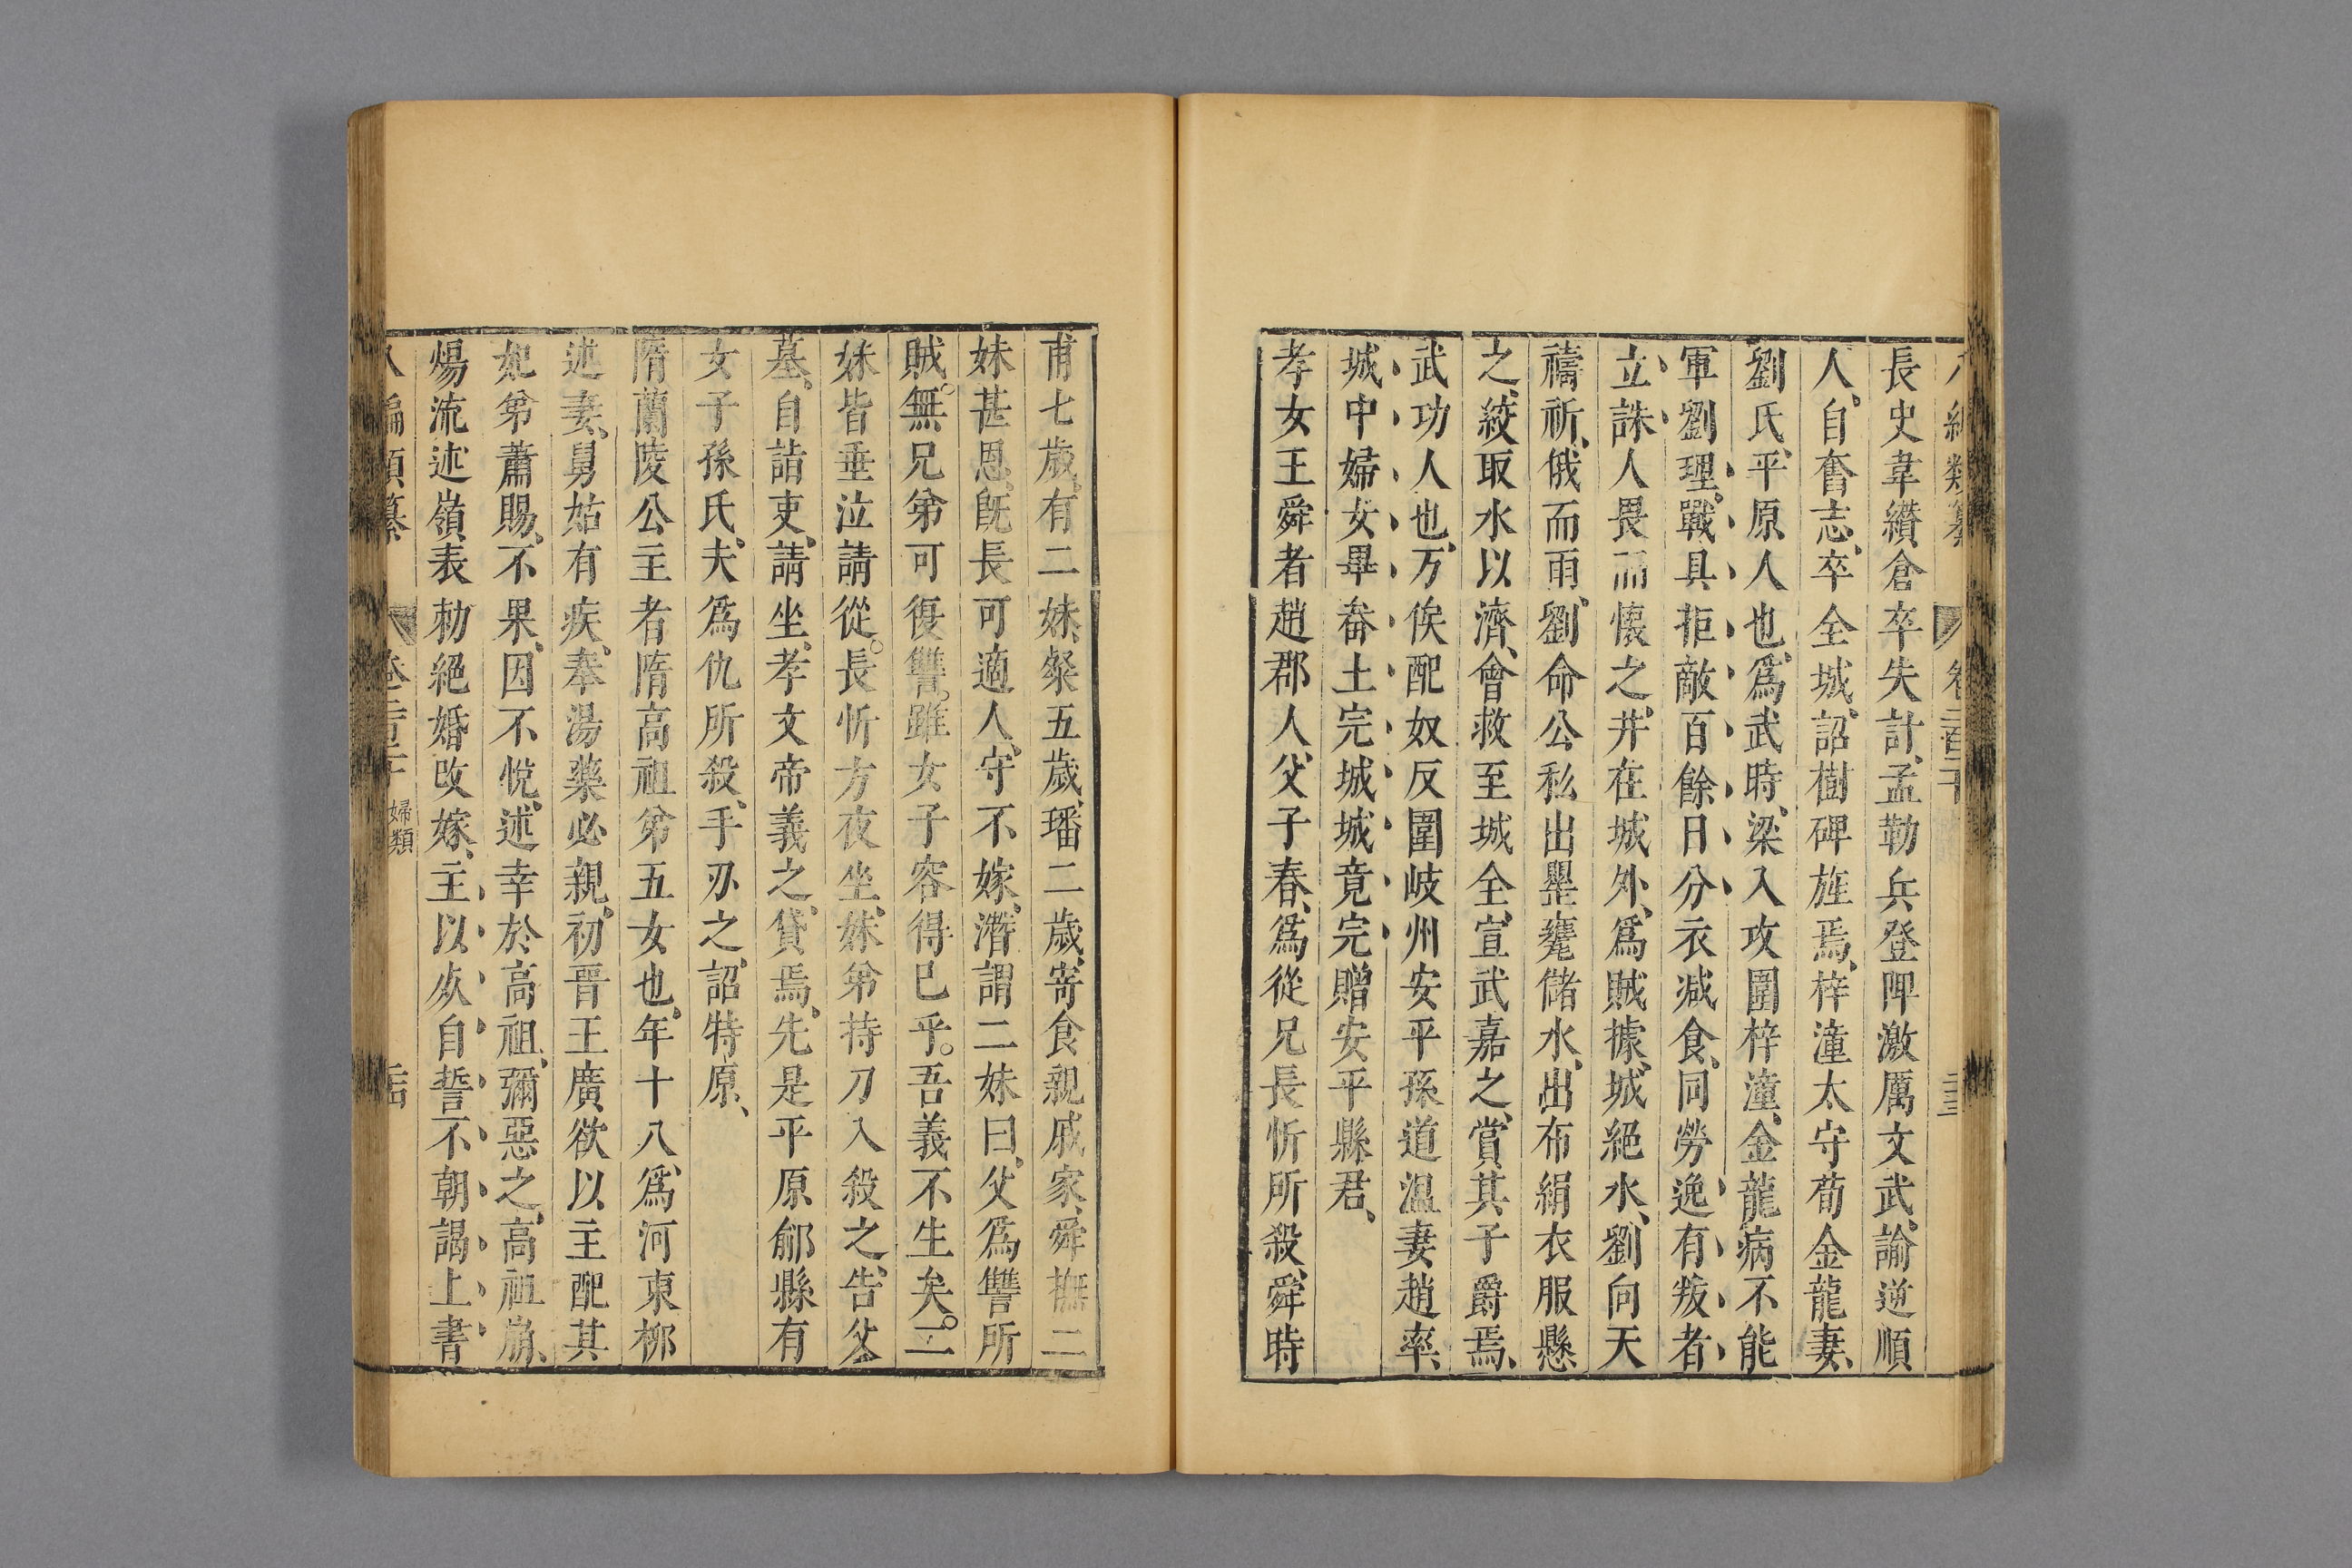 長史韋纘倉卒失計、孟勒兵登陴激厲文武、諭逆順
人、自奮志、卒全城、詔樹碑旌焉、梓潼太守荀金龍妻、
劉氏、平原人也、爲武時、梁入攻圍梓潼、金龍病不能
軍、劉理戰具、拒敵百餘日、分衣减食、同勞逸、有叛者、
立誅、人畏而懷之、井在城外、爲賊據、城絕水、劉向天
禱祈、俄而雨、劉命公私出罌甕儲水、出布絹衣服懸
之、絞取水以濟、會救至城全、宣武嘉之、賞其子爵焉、
武功人也、万俟配奴反圍岐州安平孫道溫妻趙率、
城中婦女畢畚土完城、城竟完、贈安平縣君、
孝女王舜者趙郡人、父子春、爲從兄長忻所殺、舜時
甫七歲、有二妹、粲五歲、璠二歲、寄食親戚家、舜撫二
妹甚恩、旣長可適人、守不嫁、潛謂二妹曰、父爲讐所
賊。無兄弟可復讐。雖女子容得已乎。吾義不生矣。二
妹皆垂泣請從。長忻方夜坐、妹弟持刀入殺之、告父
墓、自詣吏、請坐、孝文帝義之、貸焉、先是平原鄃縣有
女子孫氏、夫爲仇所殺、手刃之、詔特原、
隋蘭陵公主者隋高祖弟五女也、年十八、爲河東柳
述妻、舅姑有疾、奉湯藥必親、初晋王廣欲以主配其
妃弟蕭賜、不果、因不悅、述幸於高祖、彌惡之、高祖崩、
煬流述嶺表勑絕婚改嫁、主以死自誓不朝謁上書
八編類纂 卷二百三十 婦類